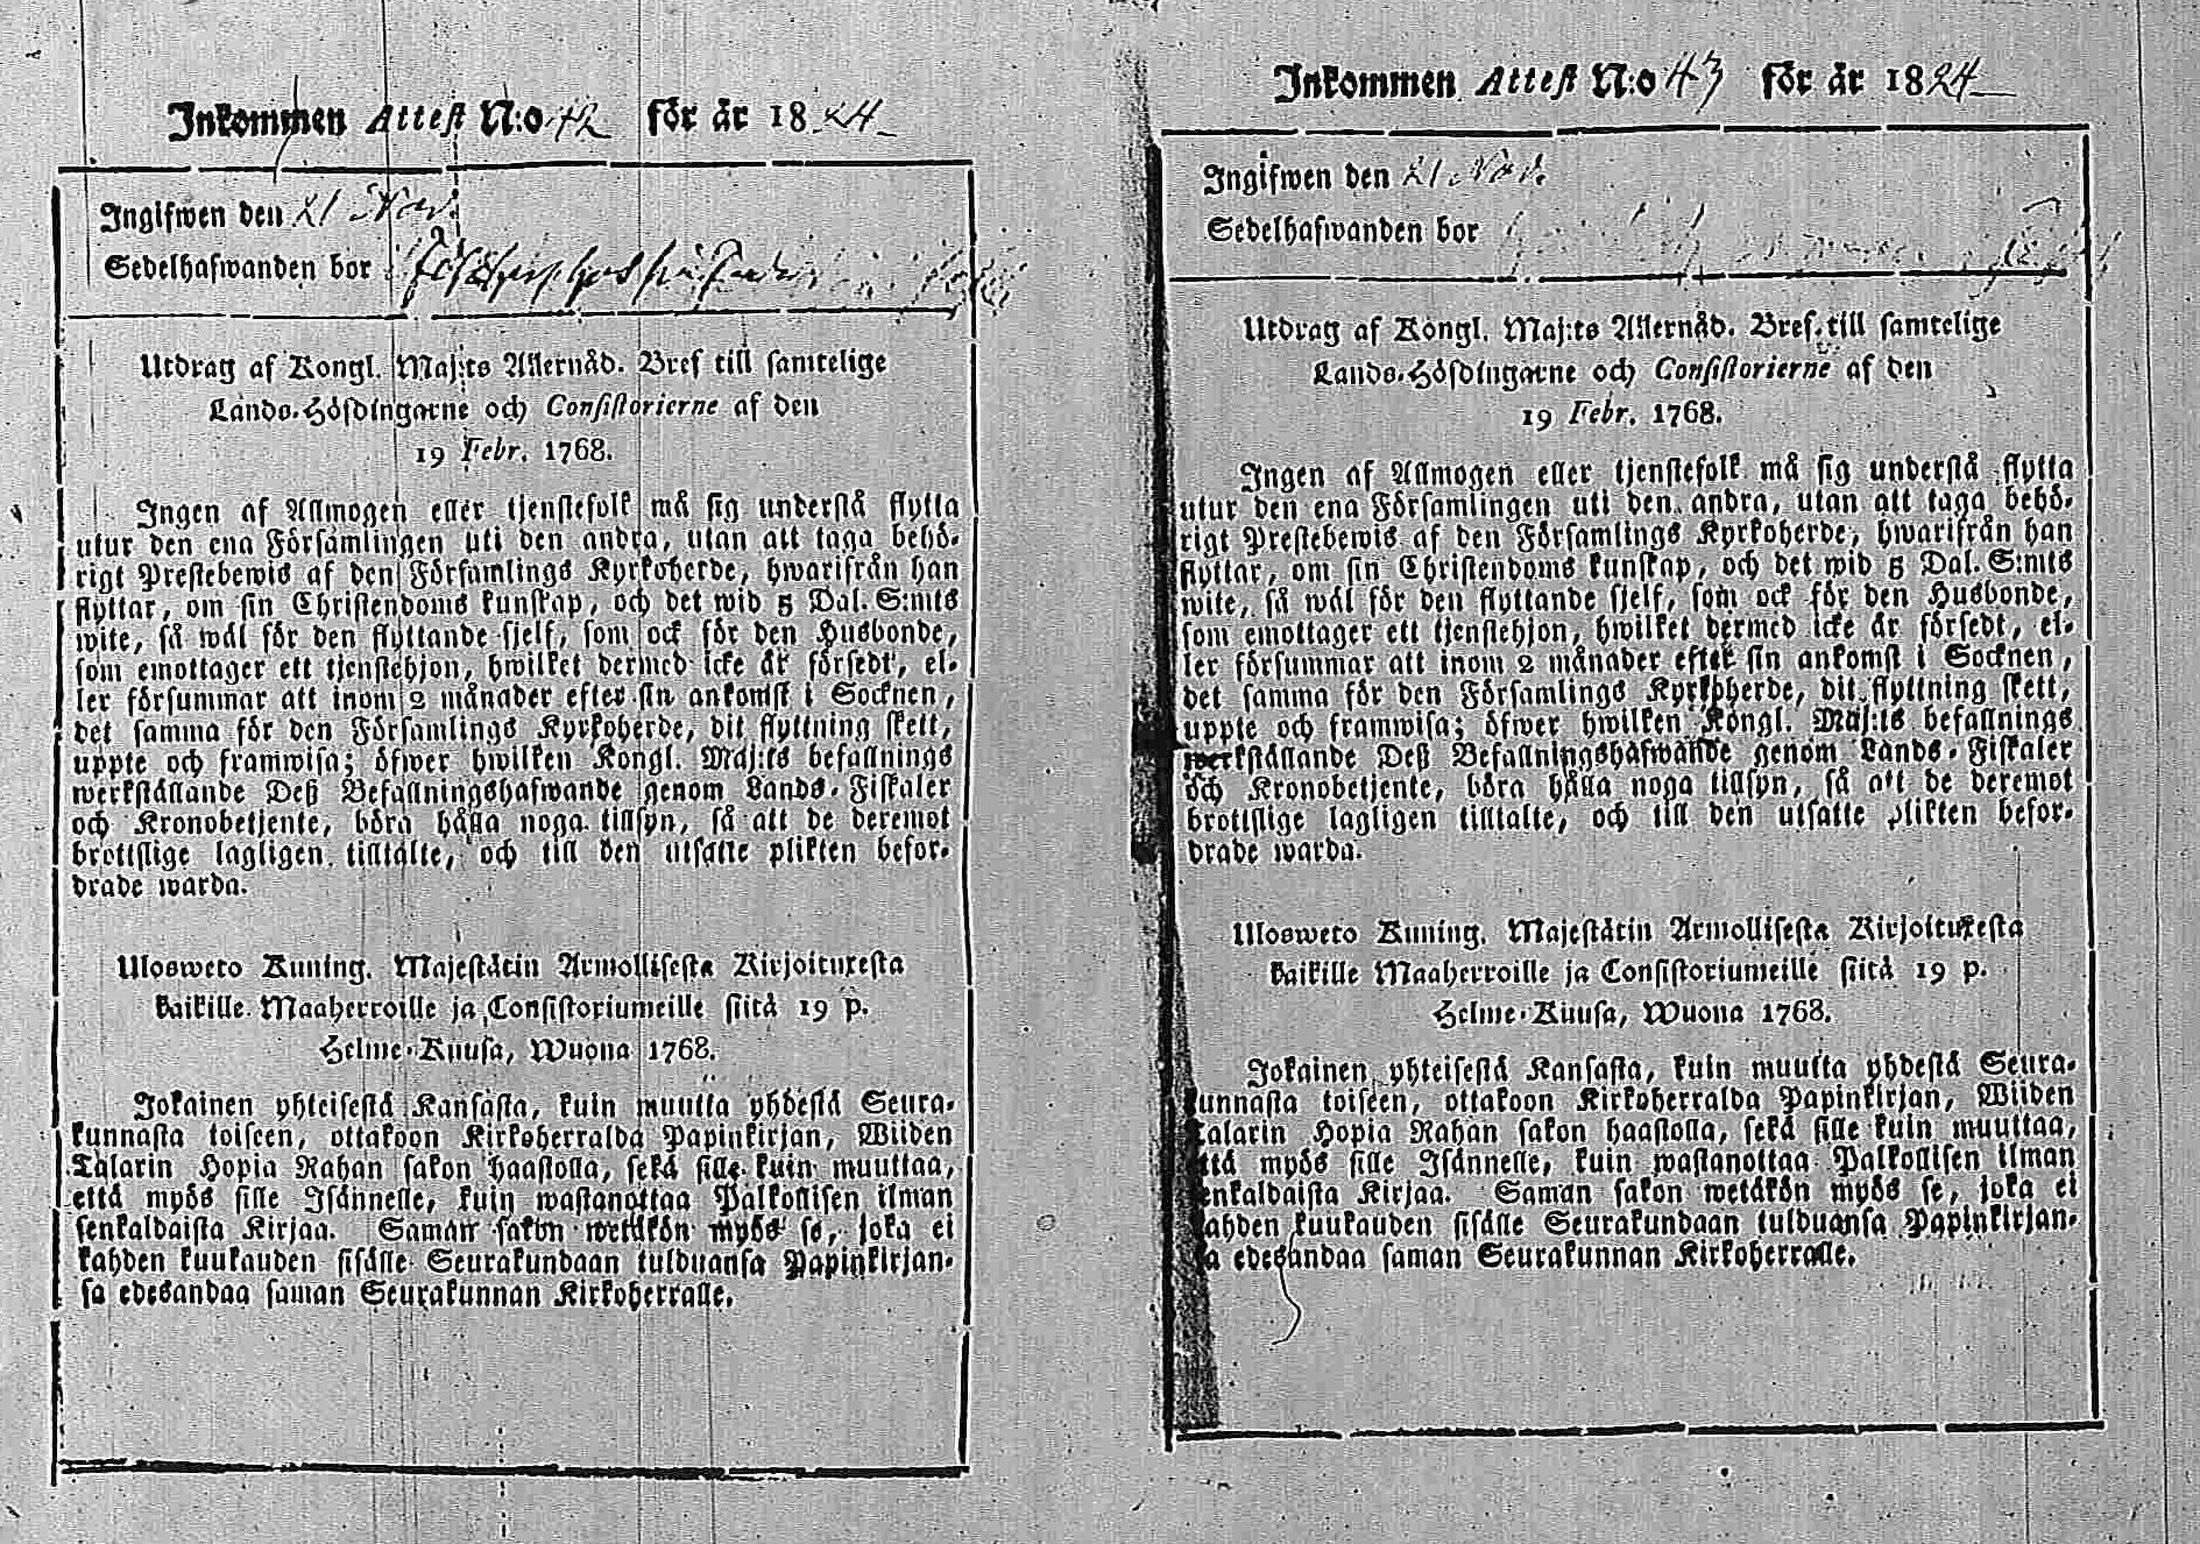 Inkommen Attest N:o 42 för år 1824
Ingifwen den 21 Nov.
Sedelhafwanden bor
Utdrag af Kongl. Maj:ts Allernåd. Bref till samtelige
Lands-Höfdingarne och Consistorierne af den
19 Febr. 1768.
Ingen af Allmogen eller tjenstefolk må sig understå flytta
utur den ena Församlingen uti den andra, utan att taga behö-
rigt Prestebewis af den Församlings Kyrkoherde, hwarifrån han
flyttar, om sin Christendoms kunskap, och det wid 5 Dal. S:mts
wite, så wäl för den flyttande sjelf, som ock för den Husbonde,
som emottager ett tjenstehjon, hwilket dermed icke är försedt, el-
ler försummar att inom 2 månader efter sin ankomst i Socknen,
det samma för den Församlings Kyrkoherde, dit flyttning skett,
uppte och framwisa; öfwer hwilken Kongl. Maj:ts befallnings
werkställande Deß Befallningshafwande genom Lands-Fiskaler
och Kronobetjente, böra hålla noga tillsyn, så att de deremot
brottslige lagligen tilltalte, och till den utsatte plikten befor-
drade warda.
Ulosweto Kuning. Majestätin Armollisesta Kirjoituxesta
kaikille Maaherroille ja Consistoriumeille siitä 19 p.
Helme-Kuusa, Wuona 1768.
Jokainen yhteisestä Kansasta, kuin muutta yhdestä Seura-
kunnasta toiseen, ottakoon Kirkoherralda Papinkirjan, Wiiden
Talarin Hopia Rahan sakon haastolla, sekä sille kuin muuttaa,
että myös sille Isännelle, kuin wastanottaa Palkollisen ilman
senkaldaista Kirjaa. Saman sakon wetäkön myös se, joka ei
kahden kuukauden sisälle Seurakundaan tulduansa Papinkirjan-
sa edesandaa saman Seurakunnan Kirkoherralle.
Inkommen Attest N:o 43 för år 1824
Ingifwen den 21 Nov.
Sedelhafwanden bor
Utdrag af Kongl. Maj:ts Allernåd. Bref till samtelige
Lands-Höfdingarne och Consistorierne af den
19 Febr. 1768.
Ingen af Allmogen eller tjenstefolk må sig understå flytta
utur den ena Församlingen uti den andra, utan att taga behö-
rigt Prestebewis af den Församlings Kyrkoherde, hwarifrån han
flyttar, om sin Christendoms kunskap, och det wid 5 Dal. S:mts
wite, så wäl för den flyttande sjelf, som ock för den Husbonde,
som emottager ett tjenstehjon, hwilket dermed icke är försedt, el-
ler försummar att inom 2 månader efter sin ankomst i Socknen,
det samma för den Församlings Kyrkoherde, dit flyttning skett,
uppte och framwisa; öfwer hwilken Kongl. Maj:ts befallnings
werkställande Deß Befallningshafwande genom Lands-Fiskaler
och Kronobetjente, böra hålla noga tillsyn, så att de deremot
brottslige lagligen tilltalte, och till den utsatte plikten befor-
drade warda.
Ulosweto Kuning. Majestätin Armollisesta Kirjoituxesta
kaikille Maaherroille ja Consistoriumeille siitä 19 p.
Helme-Kuusa, Wuona 1768.
Jokainen yhteisestä Kansasta, kuin muutta yhdestä Seura-
kunnasta toiseen, ottakoon Kirkoherralda Papinkirjan, Wiiden
Talarin Hopia Rahan sakon haastolla, sekä sille kuin muuttaa,
että myös sille Isännelle, kuin wastanottaa Palkollisen ilman
senkaldaista Kirjaa. Saman sakon wetäkön myös se, joka ei
kahden kuukauden sisälle Seurakundaan tulduansa Papinkirjan-
sa edesandaa saman Seurakunnan Kirkoherralle.